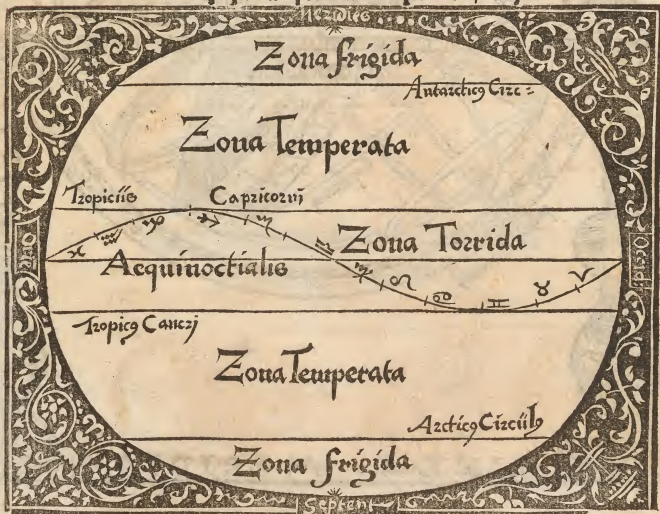 Meridies
Zona frigida
Antarcticꝰ Circ=
Zona Temperata
Tropicus Capricorni
Zona Torrida
Aequinoctialis
♓ ♒ ♑ ♐ ♏ ♎ ♍ ♌ ♋ ♊ ♉ ♈
Tropicꝰ Cancri
Zona Temperata
Arcticꝰ Circulꝰ
Zona frigida
Septent